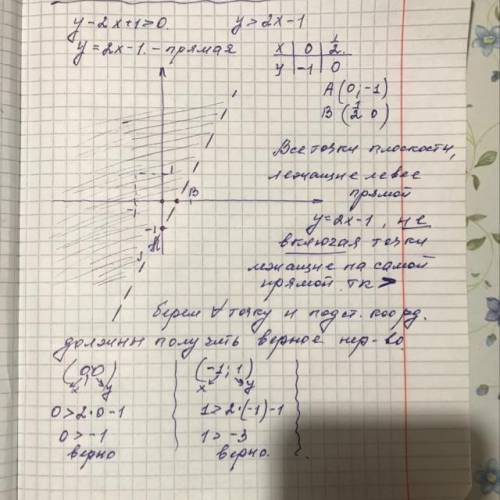 y-2x+1>0. y>2x-1
y=2x-1. - прямая
x 0 1/2
y -1 0
A(0;-1)
B(1/2 0)
1
B
-1
-1
A
Все точки плоскости,
лежащие левее
прямой
y=2x-1, не
включая точки
лежащие на самой
прямой. тк >
берем ∀ точку и подст. коорд.
должны получить верное нер-во.
(0;0) (-1; 1)
x y x y
0>2·0-1 1>2·(-1)-1
0>-1 1>-3
верно верно.